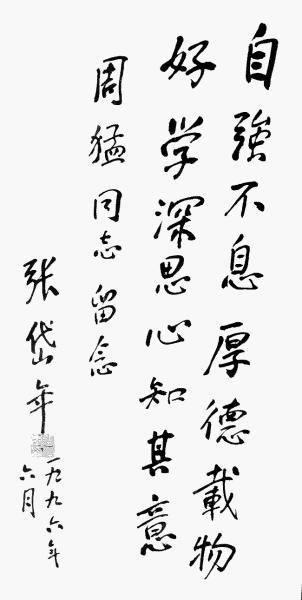 自強不息 厚德載物
好学深思心知其意
周猛同志留念
张岱年
一九九六年
六月